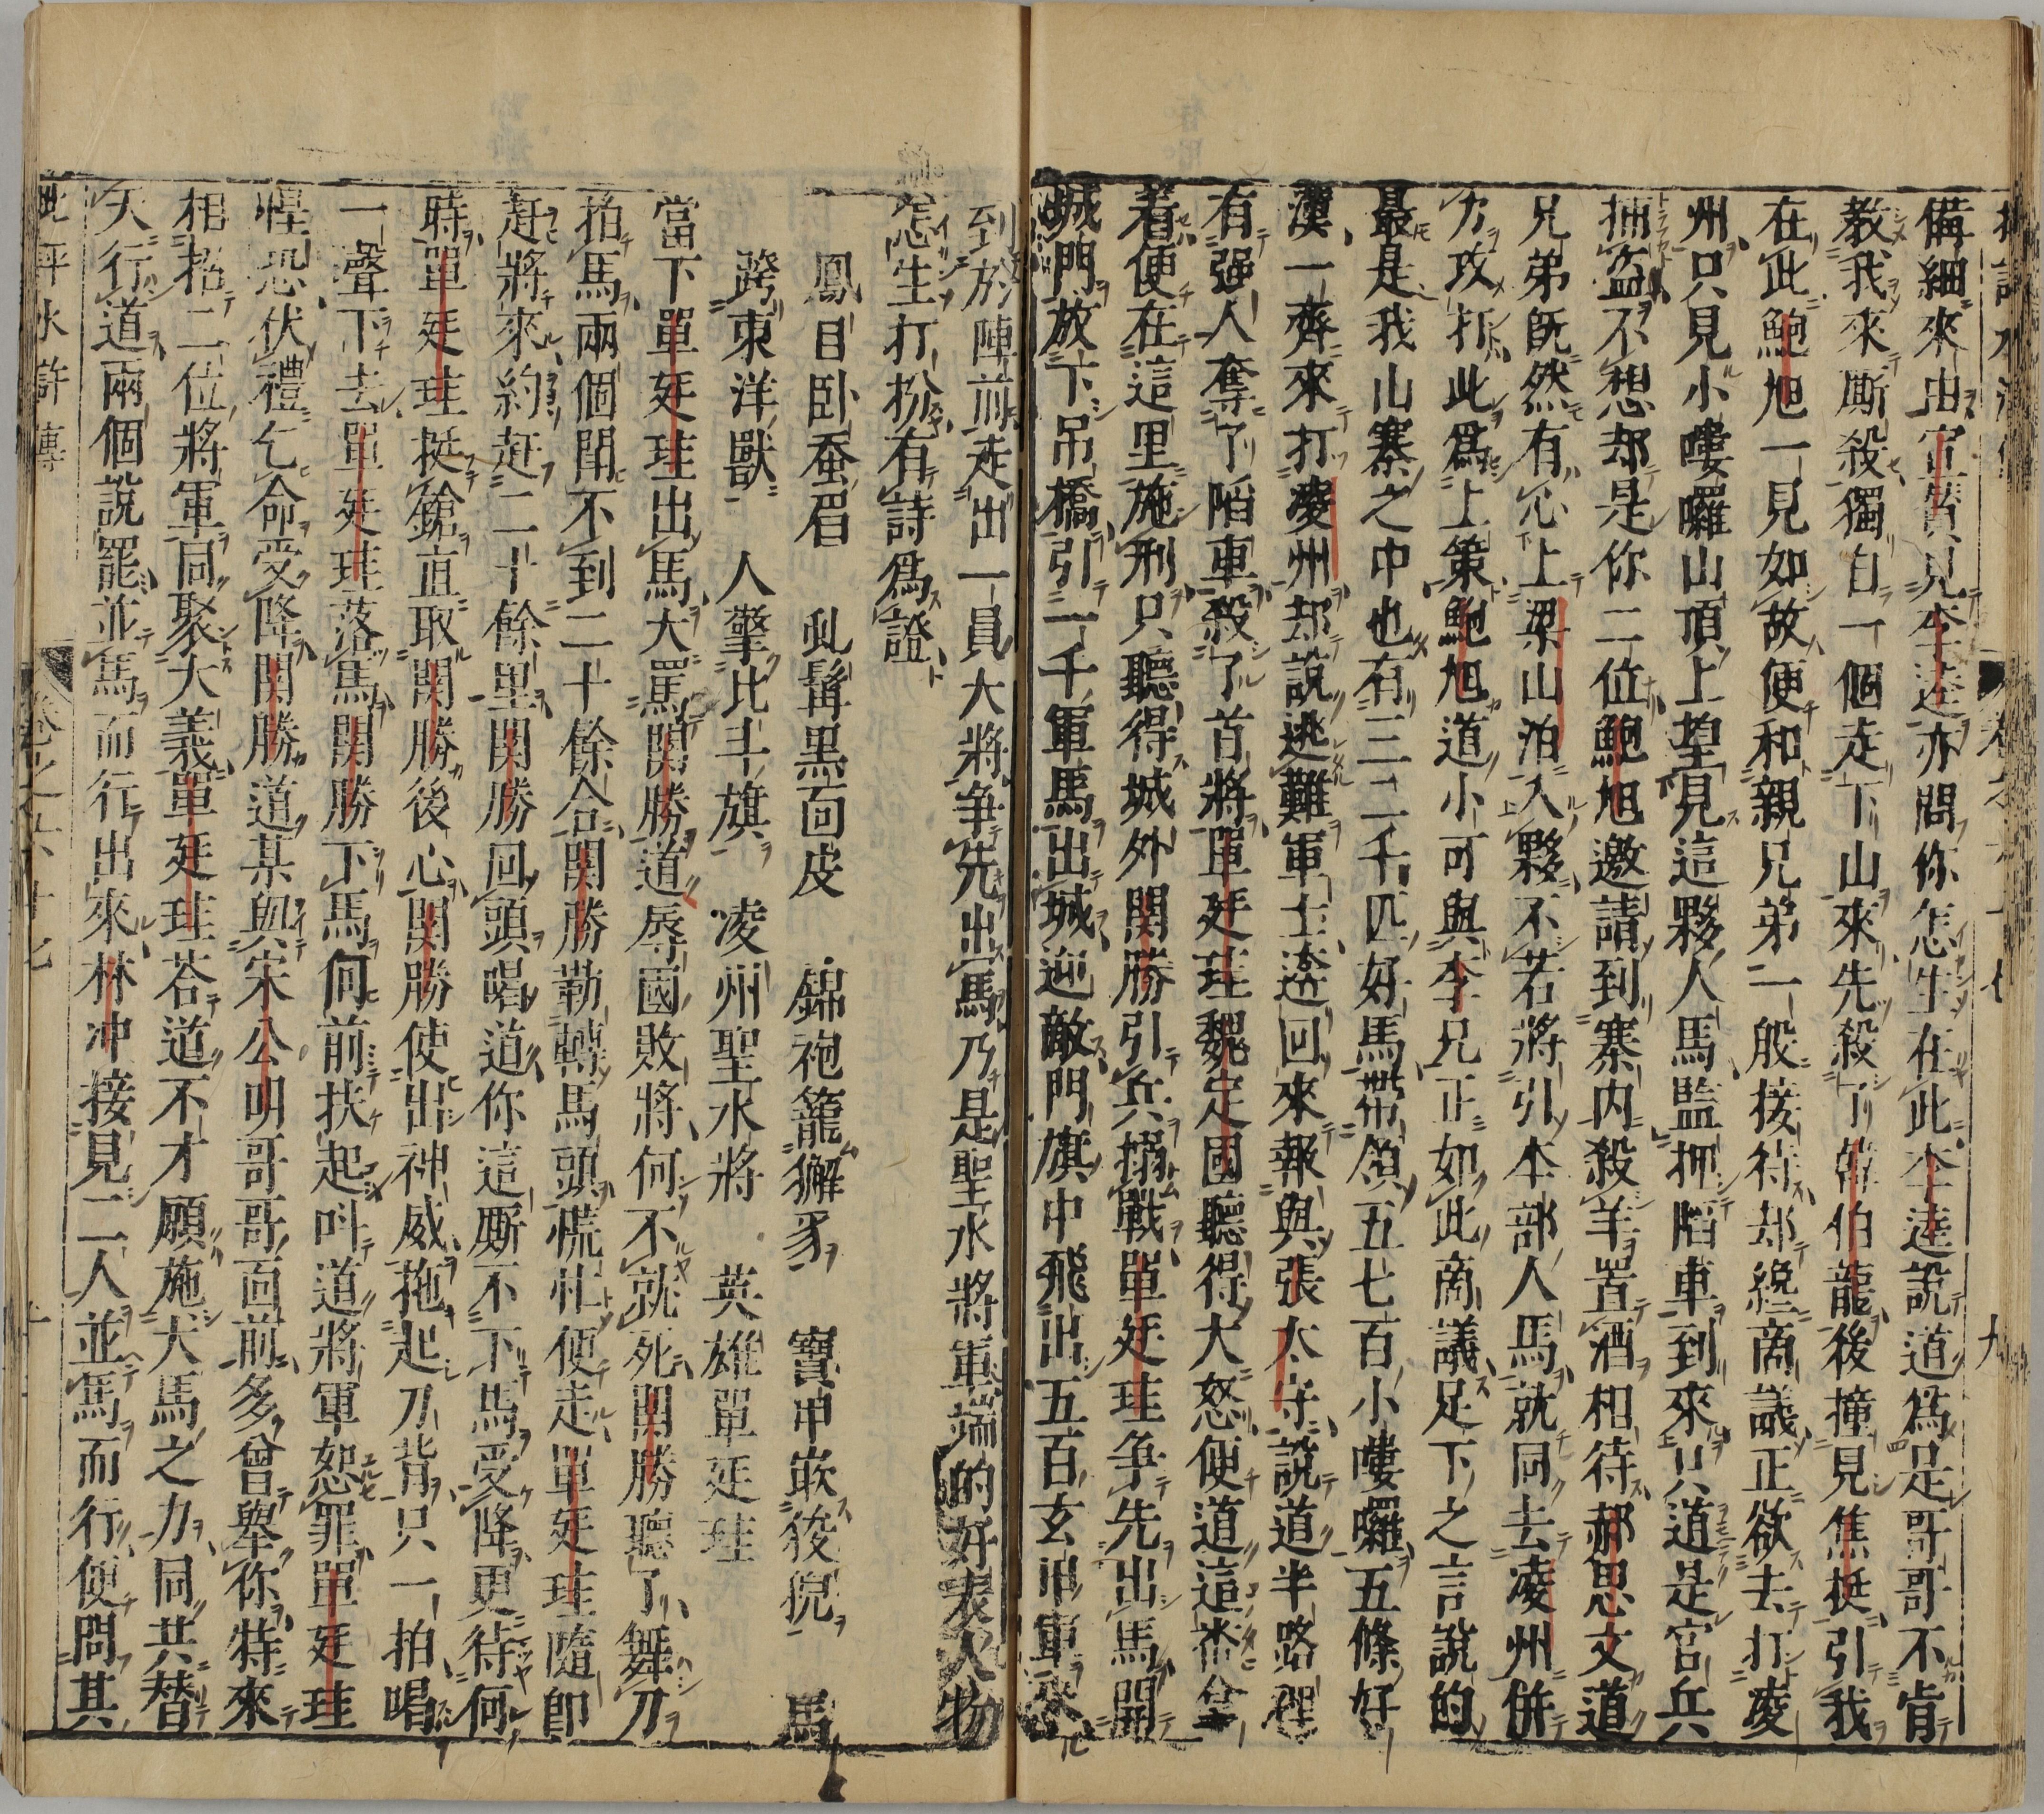 備細來由宣贊見李逵亦問你怎生在此李逵說道爲是哥哥不肯
教我來厮殺獨自一個走下山來先殺了韓伯龍後撞見焦挺引我
在此鮑旭一見如故便和親兄弟一般接待却纔商議正欲去打凌
州只見小嘍囉山頂上望見這夥人馬監押陷車到來只道是官兵
捕盜不想却是你二位鮑旭邀請到寨内殺羊置酒相待郝思文道
兄弟既然有心上梁山泊入夥不若將引本部人馬就同去凌州併
力攻打此爲上策鮑旭道小可與李兄正如此商議足下之言說的
最是我山寨之中也有三二千匹好馬帶領五七百小嘍囉五條好
漢一齊來打凌州却說逃難軍士逩回來報與張太守說道半路裡
有强人奪了陷車殺了首將單廷珪魏定國聽得大怒便道這番拿
着便在這里施刑只聽得城外関勝引兵搦戰單廷珪争先出馬開
城門放下吊橋引一千軍馬出城迎敵門旗中飛出五百玄甲軍來
到於陣前走出一員大將争先出馬乃是聖水將軍端的好表人物
怎生打扮有詩爲證
鳳目卧蚕眉　虬髯黒面皮　錦袍籠獬豸　寶甲嵌狻猊　馬
跨東洋獸　人擎北斗旗　凌州聖水將　英雄單廷珪
當下單廷珪出馬大罵関勝道辱國敗將何不就死関勝聽了舞刀
拍馬兩個閗不到二十餘合関勝勒轉馬頭慌忙便走單廷珪隨即
赶將來約赶二十餘里関勝回頭喝道你這厮不下馬受降更待何
時單廷珪挺鎗直取関勝後心関勝使出神威拖起刀背只一拍喝
一聲下去單廷珪落馬関勝下馬向前扶起呌道將軍恕罪單廷珪
惶恐伏禮乞命受降関勝道某與宋公明哥哥面前多曾舉你特來
相招二位將軍同聚大義單廷珪荅道不才願施犬馬之力同共替
天行道兩個說罷並馬而行出來林冲接見二人並馬而行便問其
卷之六十七